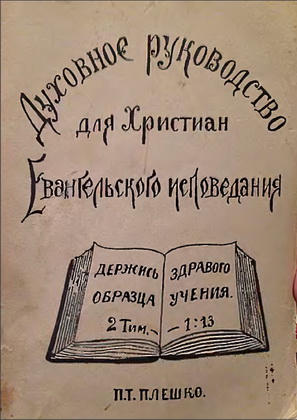 Духовное руководство
для Христиан
Евангельского исповедания
Держись
образца
2 Тим.-
здравого
учения.
- 1:13
П.Т. Плешко.